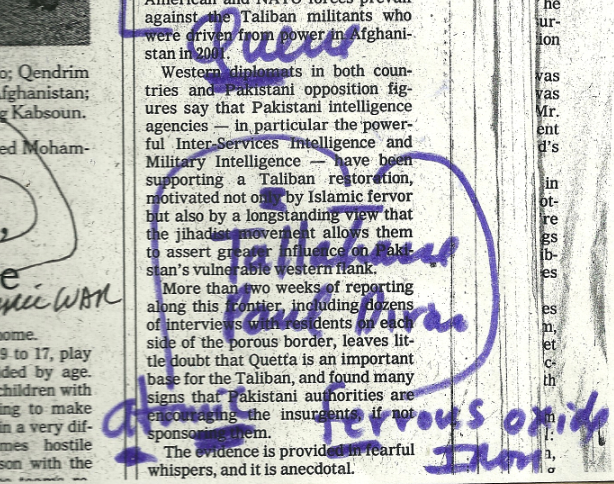 American and NATO forces prevail
against the Taliban militants who
were driven from power in Afghani-
stan in 2001.
Western diplomats in both coun-
tries and Pakistani opposition fig-
ures say that Pakistani intelligence
agencies — in particular the power-
ful Inter-Services Intelligence and
Military Intelligence — have been
supporting a Taliban restoration,
motivated not only by Islamic fervor
but also by a longstanding view that
the jihadist movement allows them
to assert greater influence on Paki-
stan's vulnerable western flank.
More than two weeks of reporting
along this frontier, including dozens
of interviews with residents on each
side of the porous border, leaves lit-
tle doubt that Quetta is an important
base for the Taliban, and found many
signs that Pakistani authorities are
encouraging the insurgents, if not
sponsoring them.
The evidence is provided in fearful
whispers, and it is anecdotal.
o; Qendrim
fghanistan;
g Kabsoun.
ed Moham-
e
WAR
ome.
9 to 17, play
ded by age.
children with
ing to make
in a very dif-
mes hostile
son with the
he
ur-
ion
was
was
Mr.
ent
d's
in
ot-
re
gs
ib-
es
es
m,
et
c-
th
Queue
Paul
ferrous oxide
Iron